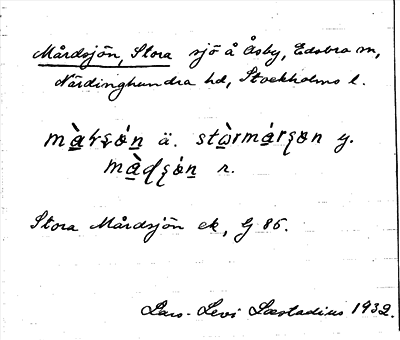 Mårdsjön, Stora sjö å Åsby, Edsbro sn,
Närdinghundra hd, Stockholms l.
ä. y.
r.
Stora Mårdsjön ek, G 86.
Lars-Levi Læstadius 1932.